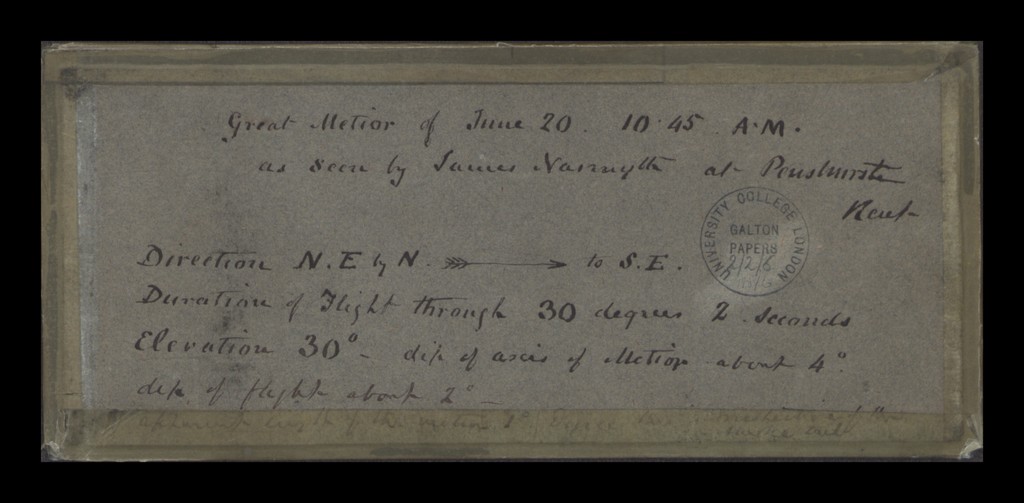 Great Metior of June 20. 10.45 A.M.
as seen by James Nasmyth at Penshurst
Kent
UNIVERSITY COLLEGE LONDON
GALTON
PAPERS
2/2/6
Direction N.E by N. to S.E.
Duration of Flight through 30 degrees 2 seconds
Elevation 30° - dip of axis of Metior about 4°.
dip of flight about 2° -
apparent length of the metior